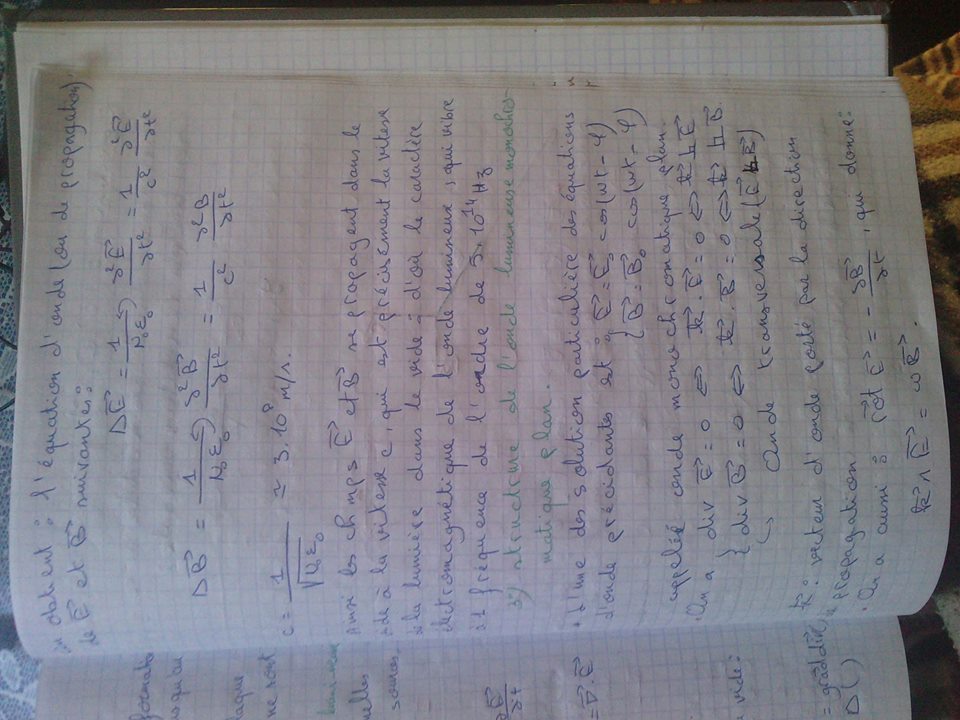 on obtient : l'équation d'onde (ou de propagation)
de E⃗ et B⃗ suivantes :
ΔE⃗ = 1/(μ₀ε₀) ∂²E⃗/∂t² = 1/c² ∂²E⃗/∂t²
ΔB⃗ = 1/(μ₀ε₀) ∂²B⃗/∂t² = 1/c² ∂²B/∂t²
c = 1/√(μ₀ε₀) ≃ 3.10⁸ m/s.
Ainsi les chmps E⃗ et B⃗ se propagent dans le
vide à la vitesse c, qui est précisément la vitesse
de la lumière dans le vide : d'où le caractère
électromagnétique de l'onde lumineuse, qui vibre
à 1 fréquence de l'ordre de 5.10¹⁴ Hz
3°) structure de l'onde lumineuse monochro-
matique plan.
* L'une des solution particulière des équations
d'onde précédantes est : { E⃗ = E⃗₀ cos(ωt - φ)
B⃗ = B⃗₀ cos(ωt - φ)
appelée onde monochromatique plan.
On a { div E⃗ = 0 ⇔ k⃗ . E⃗ = 0 ⇔ k⃗ ⊥ E⃗
div B⃗ = 0 ⇔ k⃗ . B⃗ = 0 ⇔ k⃗ ⊥ B⃗.
↳ Onde transversale (E⃗ ⊥ B⃗)
k⃗ : vecteur d'onde porté par la direction
de propagation
On a aussi : rot⃗ E⃗ = - ∂B⃗/∂t, qui donne :
k⃗ ∧ E⃗ = ω B⃗.